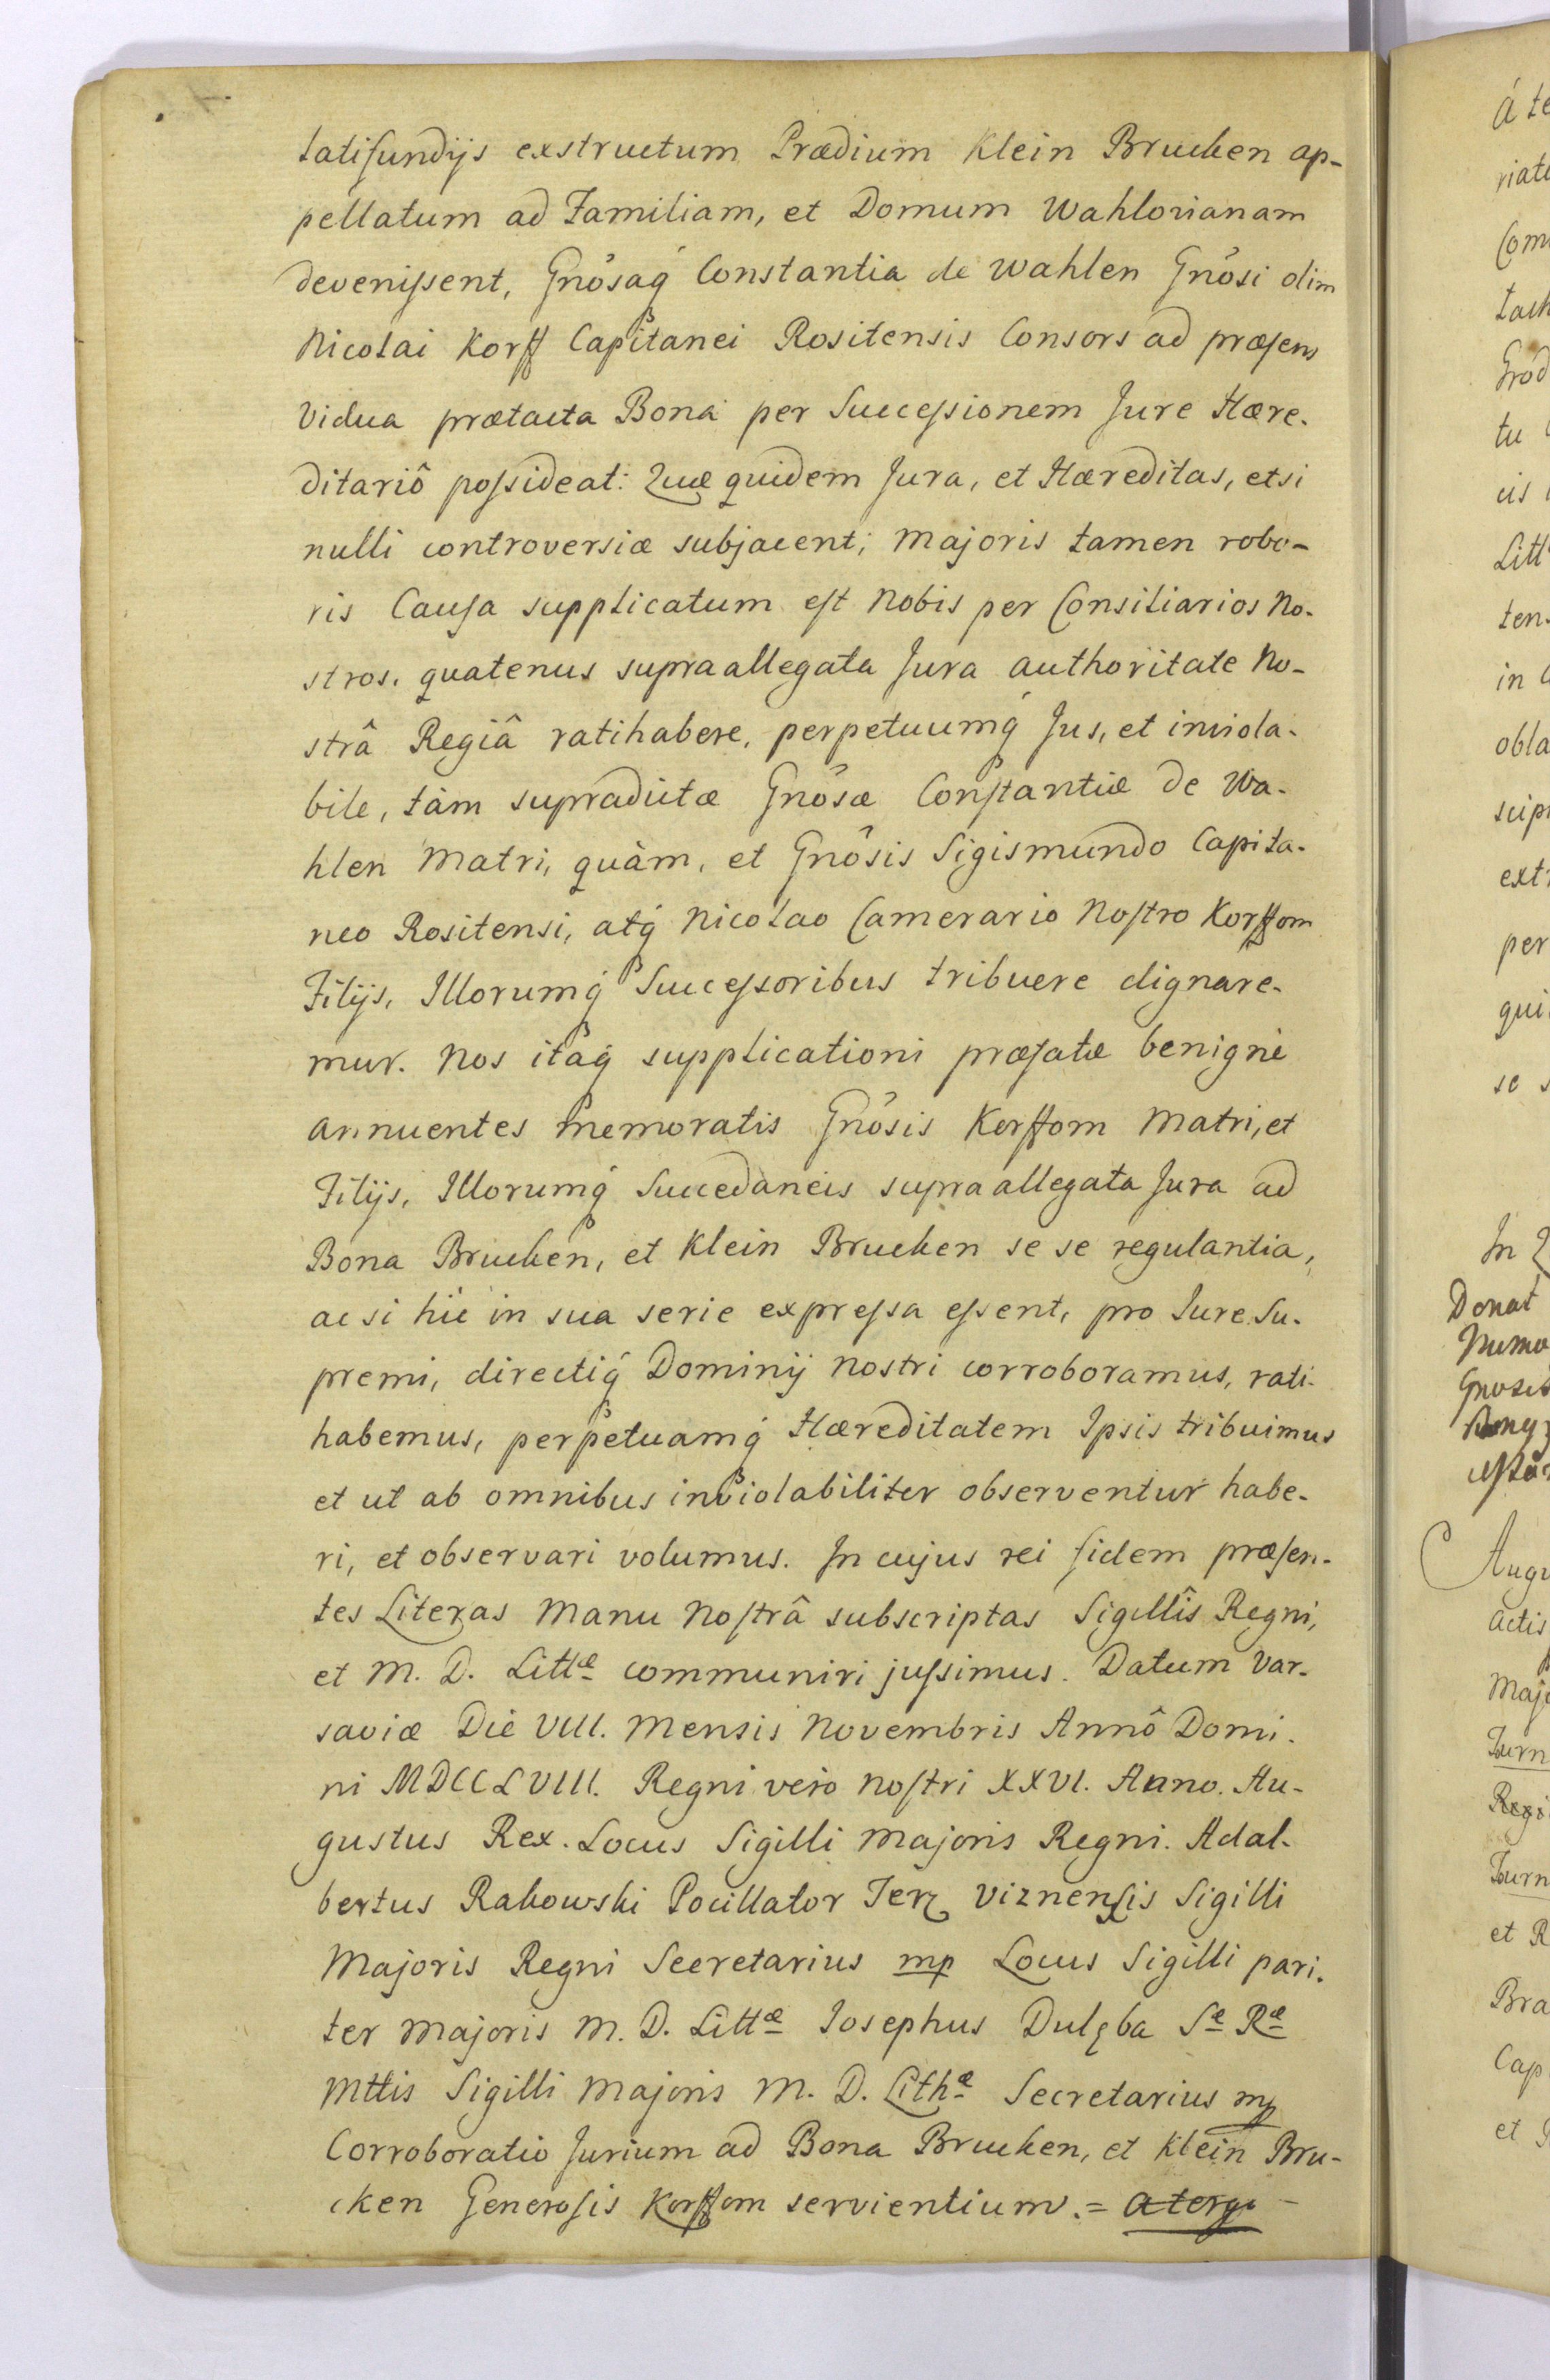 latifundijs exstructum Prædium Klein Brucken ap-
pellatum ad Familiam, et Domum Wahlorianam
devenissent, Gnôsaq́ Constantia de Wahlen Gnôsi olim
Nicolai Korff Capitanei Rositensis Consors ad præsens
Vidua prætacta Bona per Successionem Jure Hære-
ditariô possideat: Quæ quidem Jura, et Hæreditas, etsi
nulli controversiæ subjacent; Majoris tamen robo-
ris Causa supplicatum est Nobis per Consiliarios No-
stros, quatenus supraallegata Jura authoritate No-
strâ Regiâ ratihabere, perpetuumq́ Jus, et inviola-
bile, tàm supradictæ Gnôsæ Constantiæ de Wa-
hlen Matri, quàm, et Gnôsis Sigismundo Capita-
neo Rositensi, atq́ Nicolao Camerario Nostro Korffom
Filijs, Illorumq́ Successoribus tribuere dignare-
mur. Nos itaq́ supplicationi præfatæ benignè
annuentes memoratis Gnôsis Korffom Matri, et
Filijs, Illorumq́ Succedaneis supraallegata Jura ad
Bona Brucken, et Klein Brucken se se regulantia,
ac si hic in sua serie expressa essent, pro Jure Su-
premi, directiq́ Dominij nostri corroboramus, rati-
habemus, perpetuamq́ Hæreditatem Ipsis tribuimus
et ut ab omnibus inviolabiliter observentur habe-
ri, et observari volumus. In cujus rei fidem præsen-
tes Literas Manu Nostrâ subscriptas Sigillîs Regni,
et M. D. Littæ communiri jussimus. Datum Var-
saviæ Die VIII. Mensis Novembris Annô Domi-
ni MDCCLVIII. Regni vero nostri XXVI. Anno. Au-
gustus Rex. Locus Sigilli Majoris Regni. Adal-
bertus Rakowski Pocillator Terz Viznensis Sigilli
Majoris Regni Secretarius mp Locus Sigilli pari-
ter Majoris M. D. Littæ Josephus Dulęba Sæ Ræ
Mttis Sigilli Majoris M. D. Lithæ Secretarius mp
Corroboratio Jurium ad Bona Brucken, et Klein Bru-
cken Generosis Korffom servientium. = a tergo -
á te
riat
Com
tach
Grod
tu
cis
Litt
ten-
in
obla
scip
ext
per
qui
se s
In
Donat
Gnosis
Aug
actis
Maj
Regi
et R
Bra
Cap
et